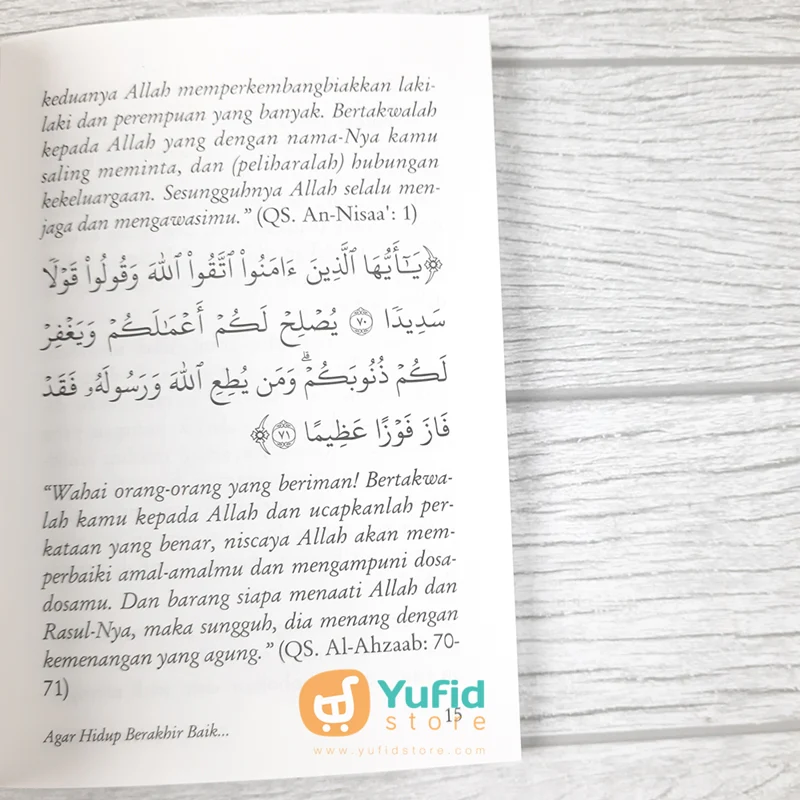 keduanya Allah memperkembangbiakkan laki-
laki dan perempuan yang banyak. Bertakwalah
kepada Allah yang dengan nama-Nya kamu
saling meminta, dan (peliharalah) hubungan
kekeluargaan. Sesungguhnya Allah selalu men-
jaga dan mengawasimu.” (QS. An-Nisaa': 1)
﴿يَـٰٓأَيُّهَا ٱلَّذِينَ ءَامَنُوا۟ ٱتَّقُوا۟ ٱللَّهَ وَقُولُوا۟ قَوْلًا
سَدِيدًا ۝٧٠ يُصْلِحْ لَكُمْ أَعْمَـٰلَكُمْ وَيَغْفِرْ
لَكُمْ ذُنُوبَكُمْ ۗ وَمَن يُطِعِ ٱللَّهَ وَرَسُولَهُۥ فَقَدْ
فَازَ فَوْزًا عَظِيمًا ۝٧١﴾
“Wahai orang-orang yang beriman! Bertakwa-
lah kamu kepada Allah dan ucapkanlah per-
kataan yang benar, niscaya Allah akan mem-
perbaiki amal-amalmu dan mengampuni dosa-
dosamu. Dan barang siapa menaati Allah dan
Rasul-Nya, maka sungguh, dia menang dengan
kemenangan yang agung.” (QS. Al-Ahzaab: 70-
71)
Agar Hidup Berakhir Baik...
15
Yufid
store
www.yufidstore.com